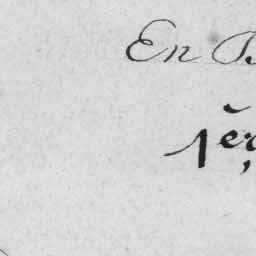 En B
1er